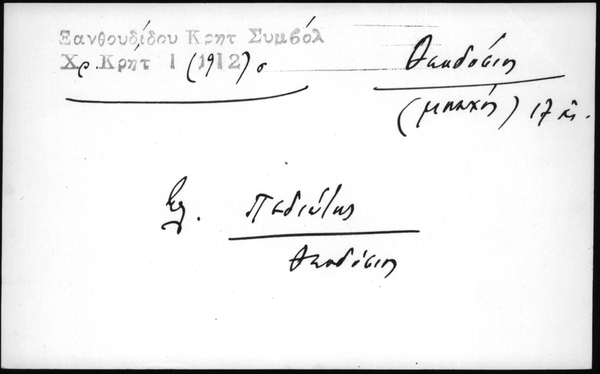 Ξανθουδίδου Κρητ Συμβόλ
Χρ. Κρήτ 1 (1912) σ
Θεοδόσιος
(μπαχής) 17 αἰ.
βλ. Πεδιώτης
Θεοδόσιος